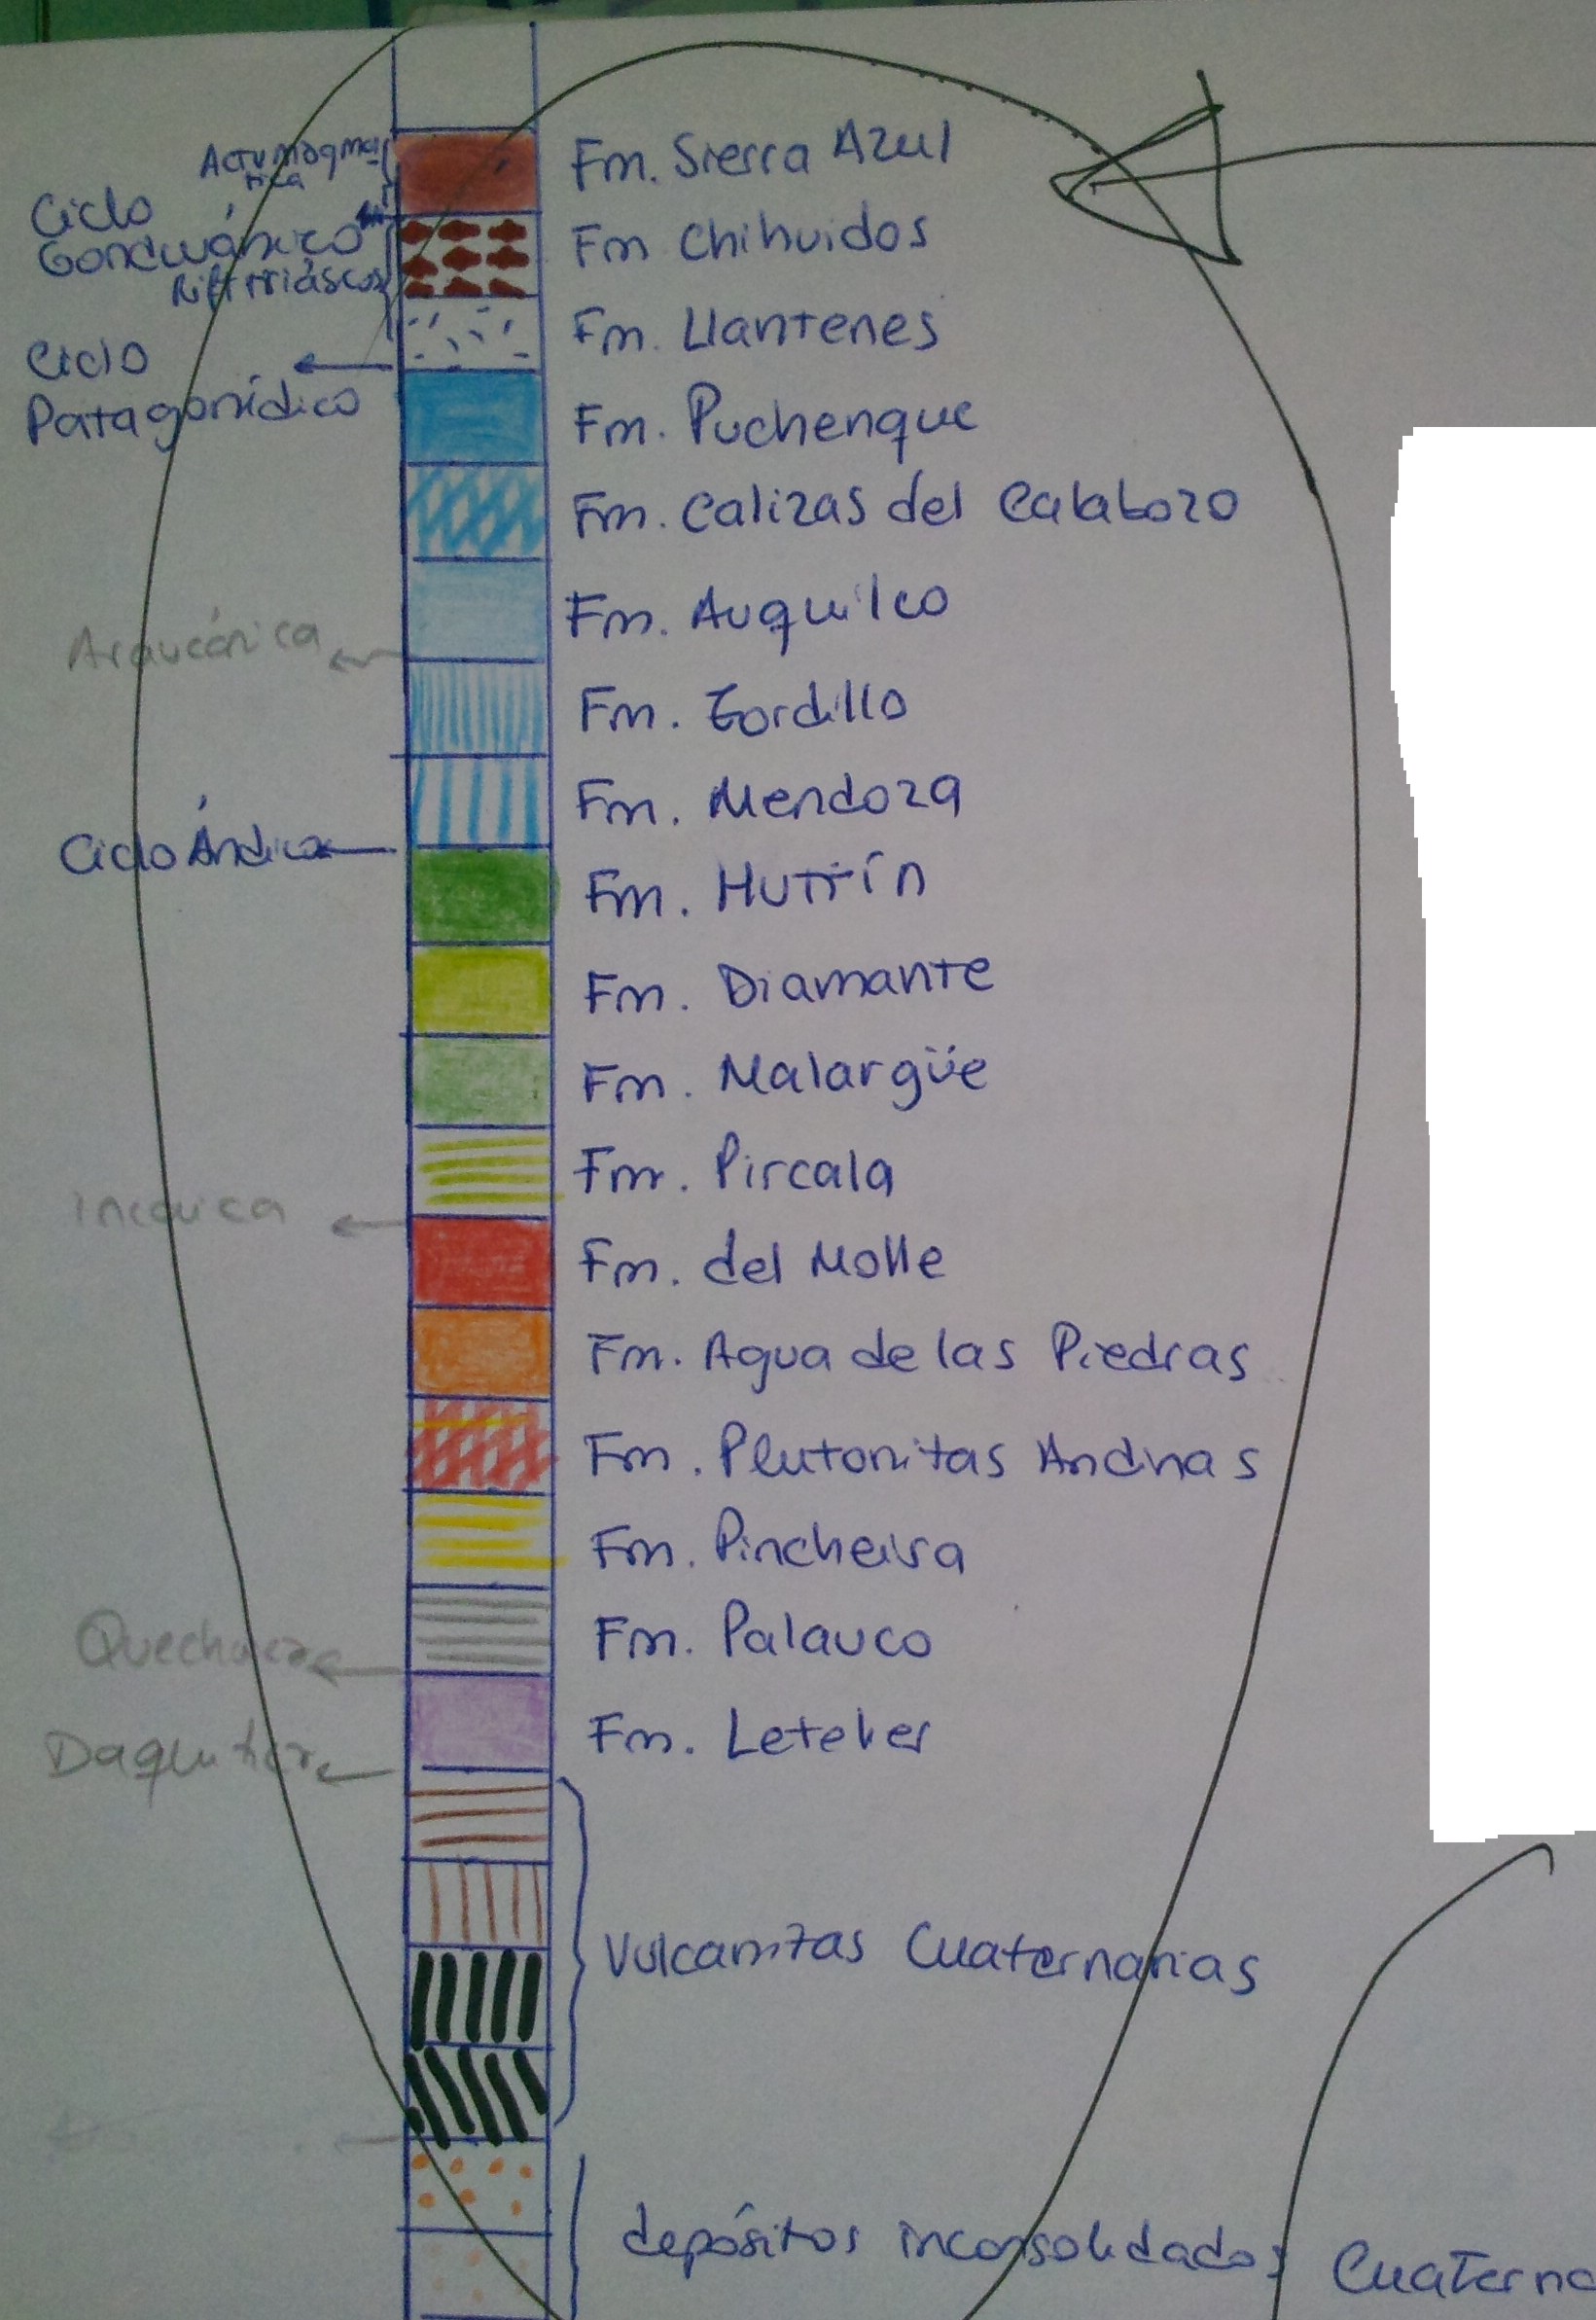 Actv Magmá-
tica
Fm. Sierra Azul
Ciclo
Gondwánico
Fm Chihuidos
Rift triásico
Fm. Llantenes
Ciclo
Patagonídico
Fm. Puchenque
Fm. Calizas del Calabozo
Fm. Auquilco
Araucánica
Fm. Tordillo
Fm. Mendoza
Ciclo Ándico
Fm. Huttín
Fm. Diamante
Fm. Malargüe
Fm. Pircala
Incaica
Fm. del Molle
Fm. Agua de las Piedras
Fm. Plutonitas Andinas
Fm. Pincheira
Fm. Palauco
Quechua
Fm. Letelier
Vulcanitas Cuaternarias
depósitos inconsolidados Cuaterna